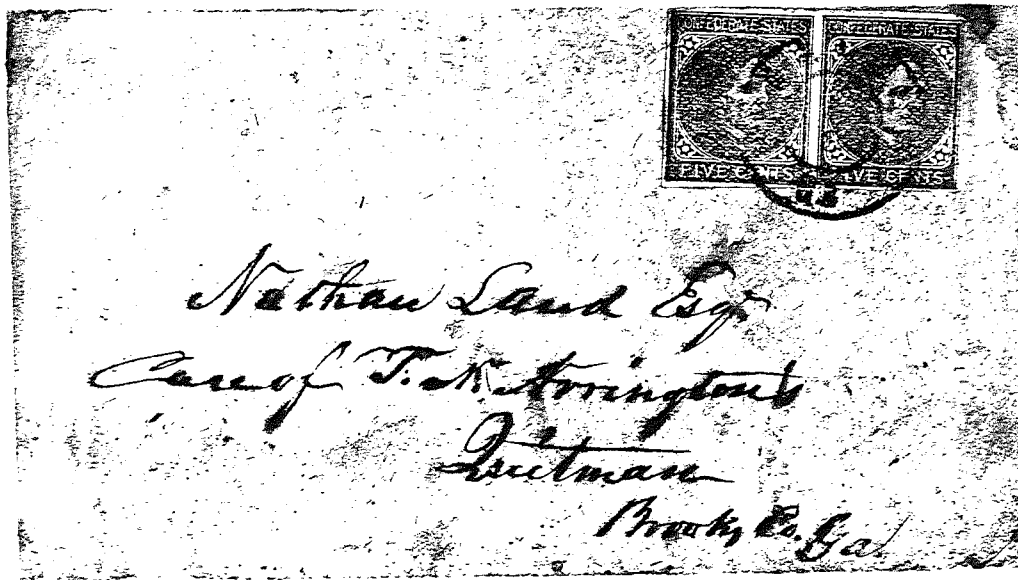 CONFEDERATE STATES CONFEDERATE STATES
FIVE CENTS FIVE CENTS
Nathan Land Esqr
Care of T. N. Arrington's
Quitman
Brooks Co. Ga.